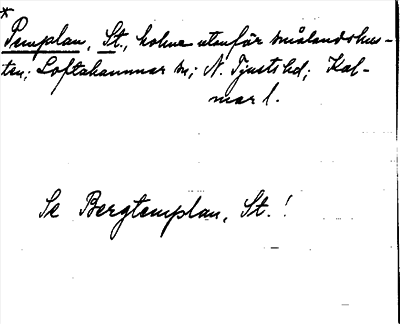 *
Pemplan, St., holme utanför smålandskus-
ten; Loftahammar sn; N. Tjusts hd; Kal-
mar l.
Se Bergtemplan, St.!